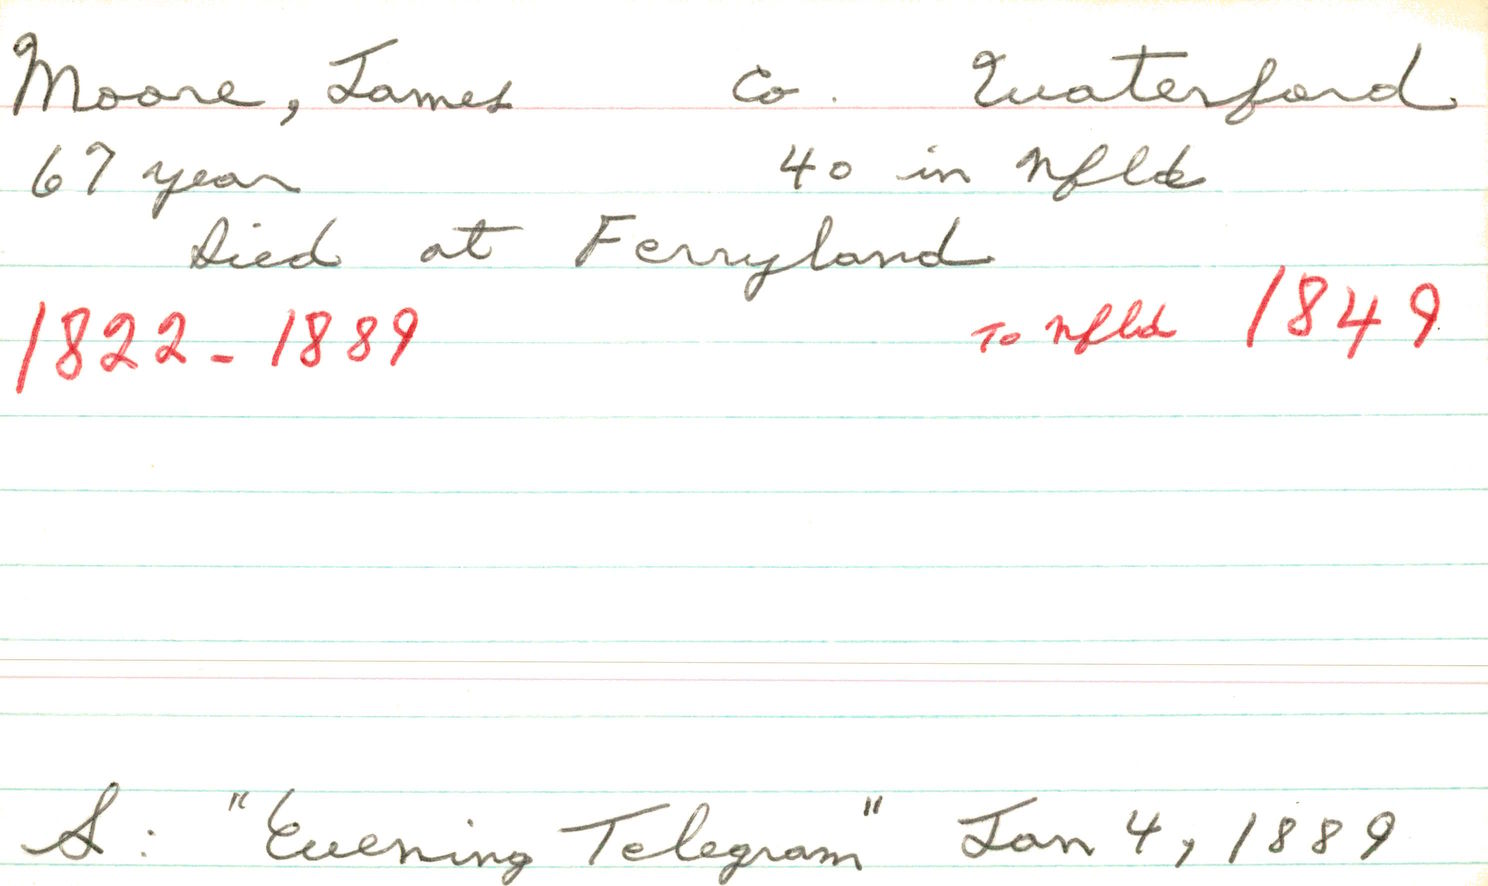 Moore, James Co. Waterford
67 year 40 in Nfld
Died at Ferryland
1822-1889 To Nfld 1849
S: "Evening Telegram" Jan 4, 1889